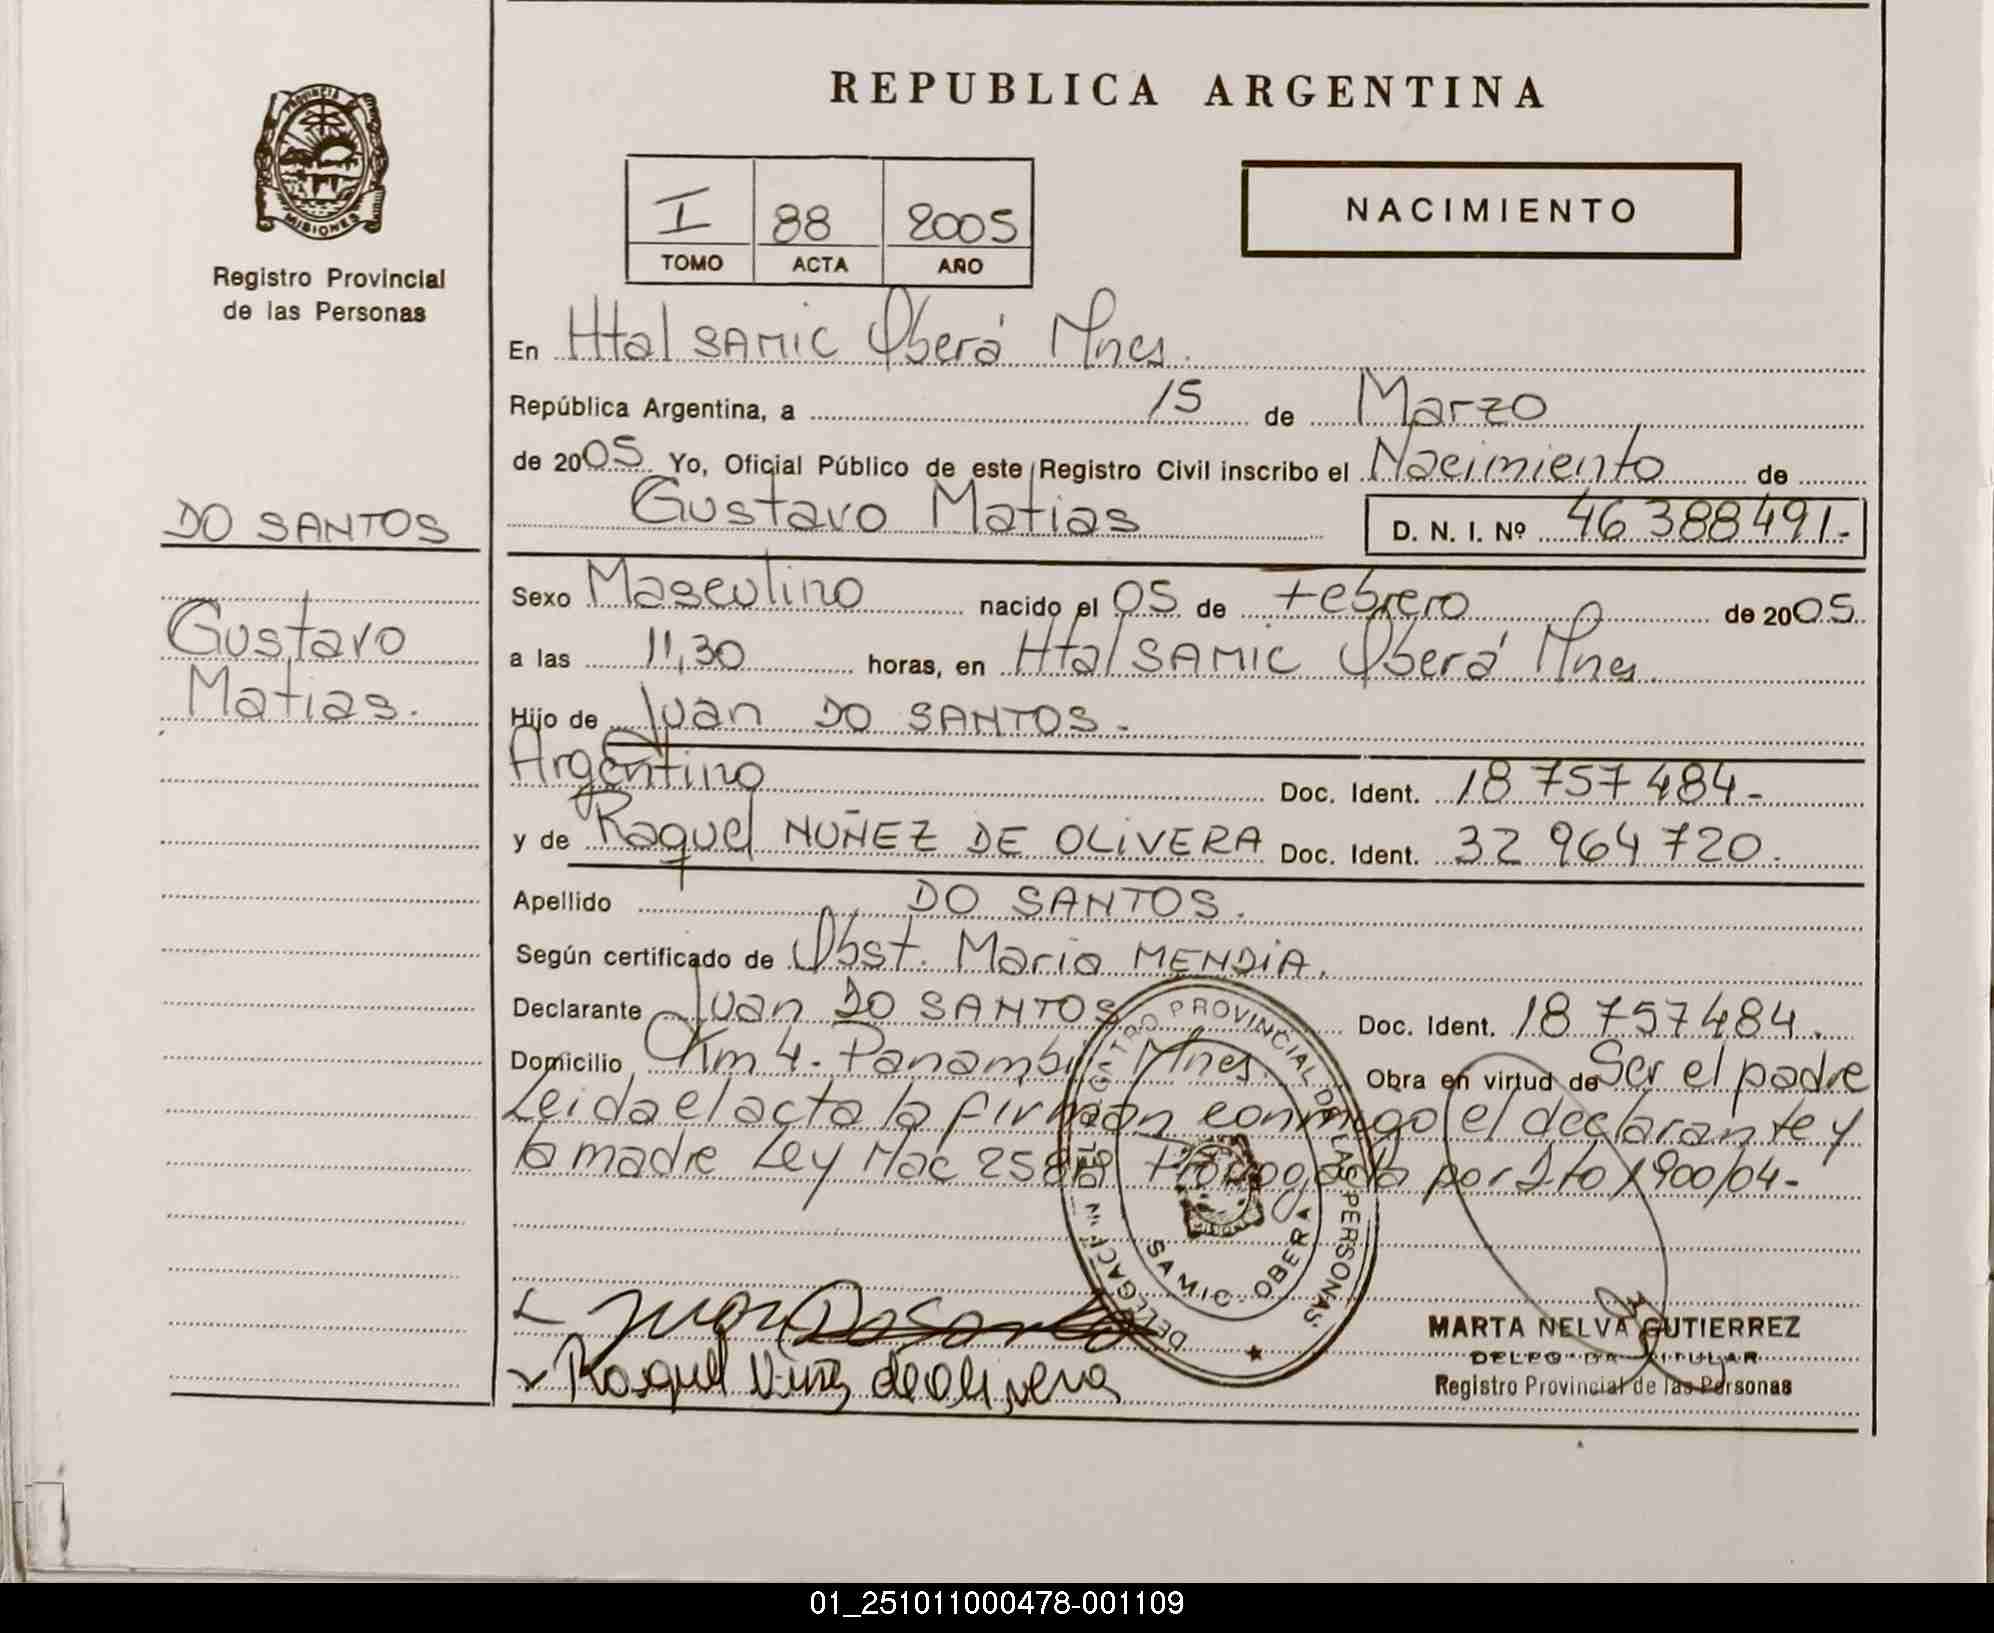 REPUBLICA ARGENTINA
PROVINCIA DE MISIONES
Registro Provincial
de las Personas
I 88 2005
TOMO ACTA AÑO
NACIMIENTO
En Htal SAMIC Oberá Mnes.
República Argentina, a 15 de Marzo
de 2005 Yo, Oficial Público de este Registro Civil inscribo el Nacimiento de
Gustavo Matias D. N. I. Nº 46 388 491.-
DO SANTOS
Gustavo
Matias.
Sexo Masculino nacido el 05 de Febrero de 2005
a las 11,30 horas, en Htal SAMIC Oberá Mnes.
Hijo de Juan DO SANTOS.-
Argentino Doc. Ident. 18 757 484.-
y de Raquel NUÑEZ DE OLIVERA Doc. Ident. 32 964 720.
Apellido DO SANTOS.
Según certificado de Obst. Mario MENDIA.
Declarante Juan DO SANTOS Doc. Ident. 18 757 484.
Domicilio Km 4.- Panambí Mnes. Obra en virtud de Ser el padre
Leida el acta la firman conmigo el declarante y
la madre Ley Nac 25819 Prorrogada por Dto 1900/04.-
DELEGACION DEL REGISTRO PROVINCIAL DE LAS PERSONAS
MISIONES
SAMIC - OBERA
Juan Dosantos
Raquel de olivera
MARTA NELVA GUTIERREZ
DELEGADA TITULAR
Registro Provincial de las Personas
01_251011000478-001109